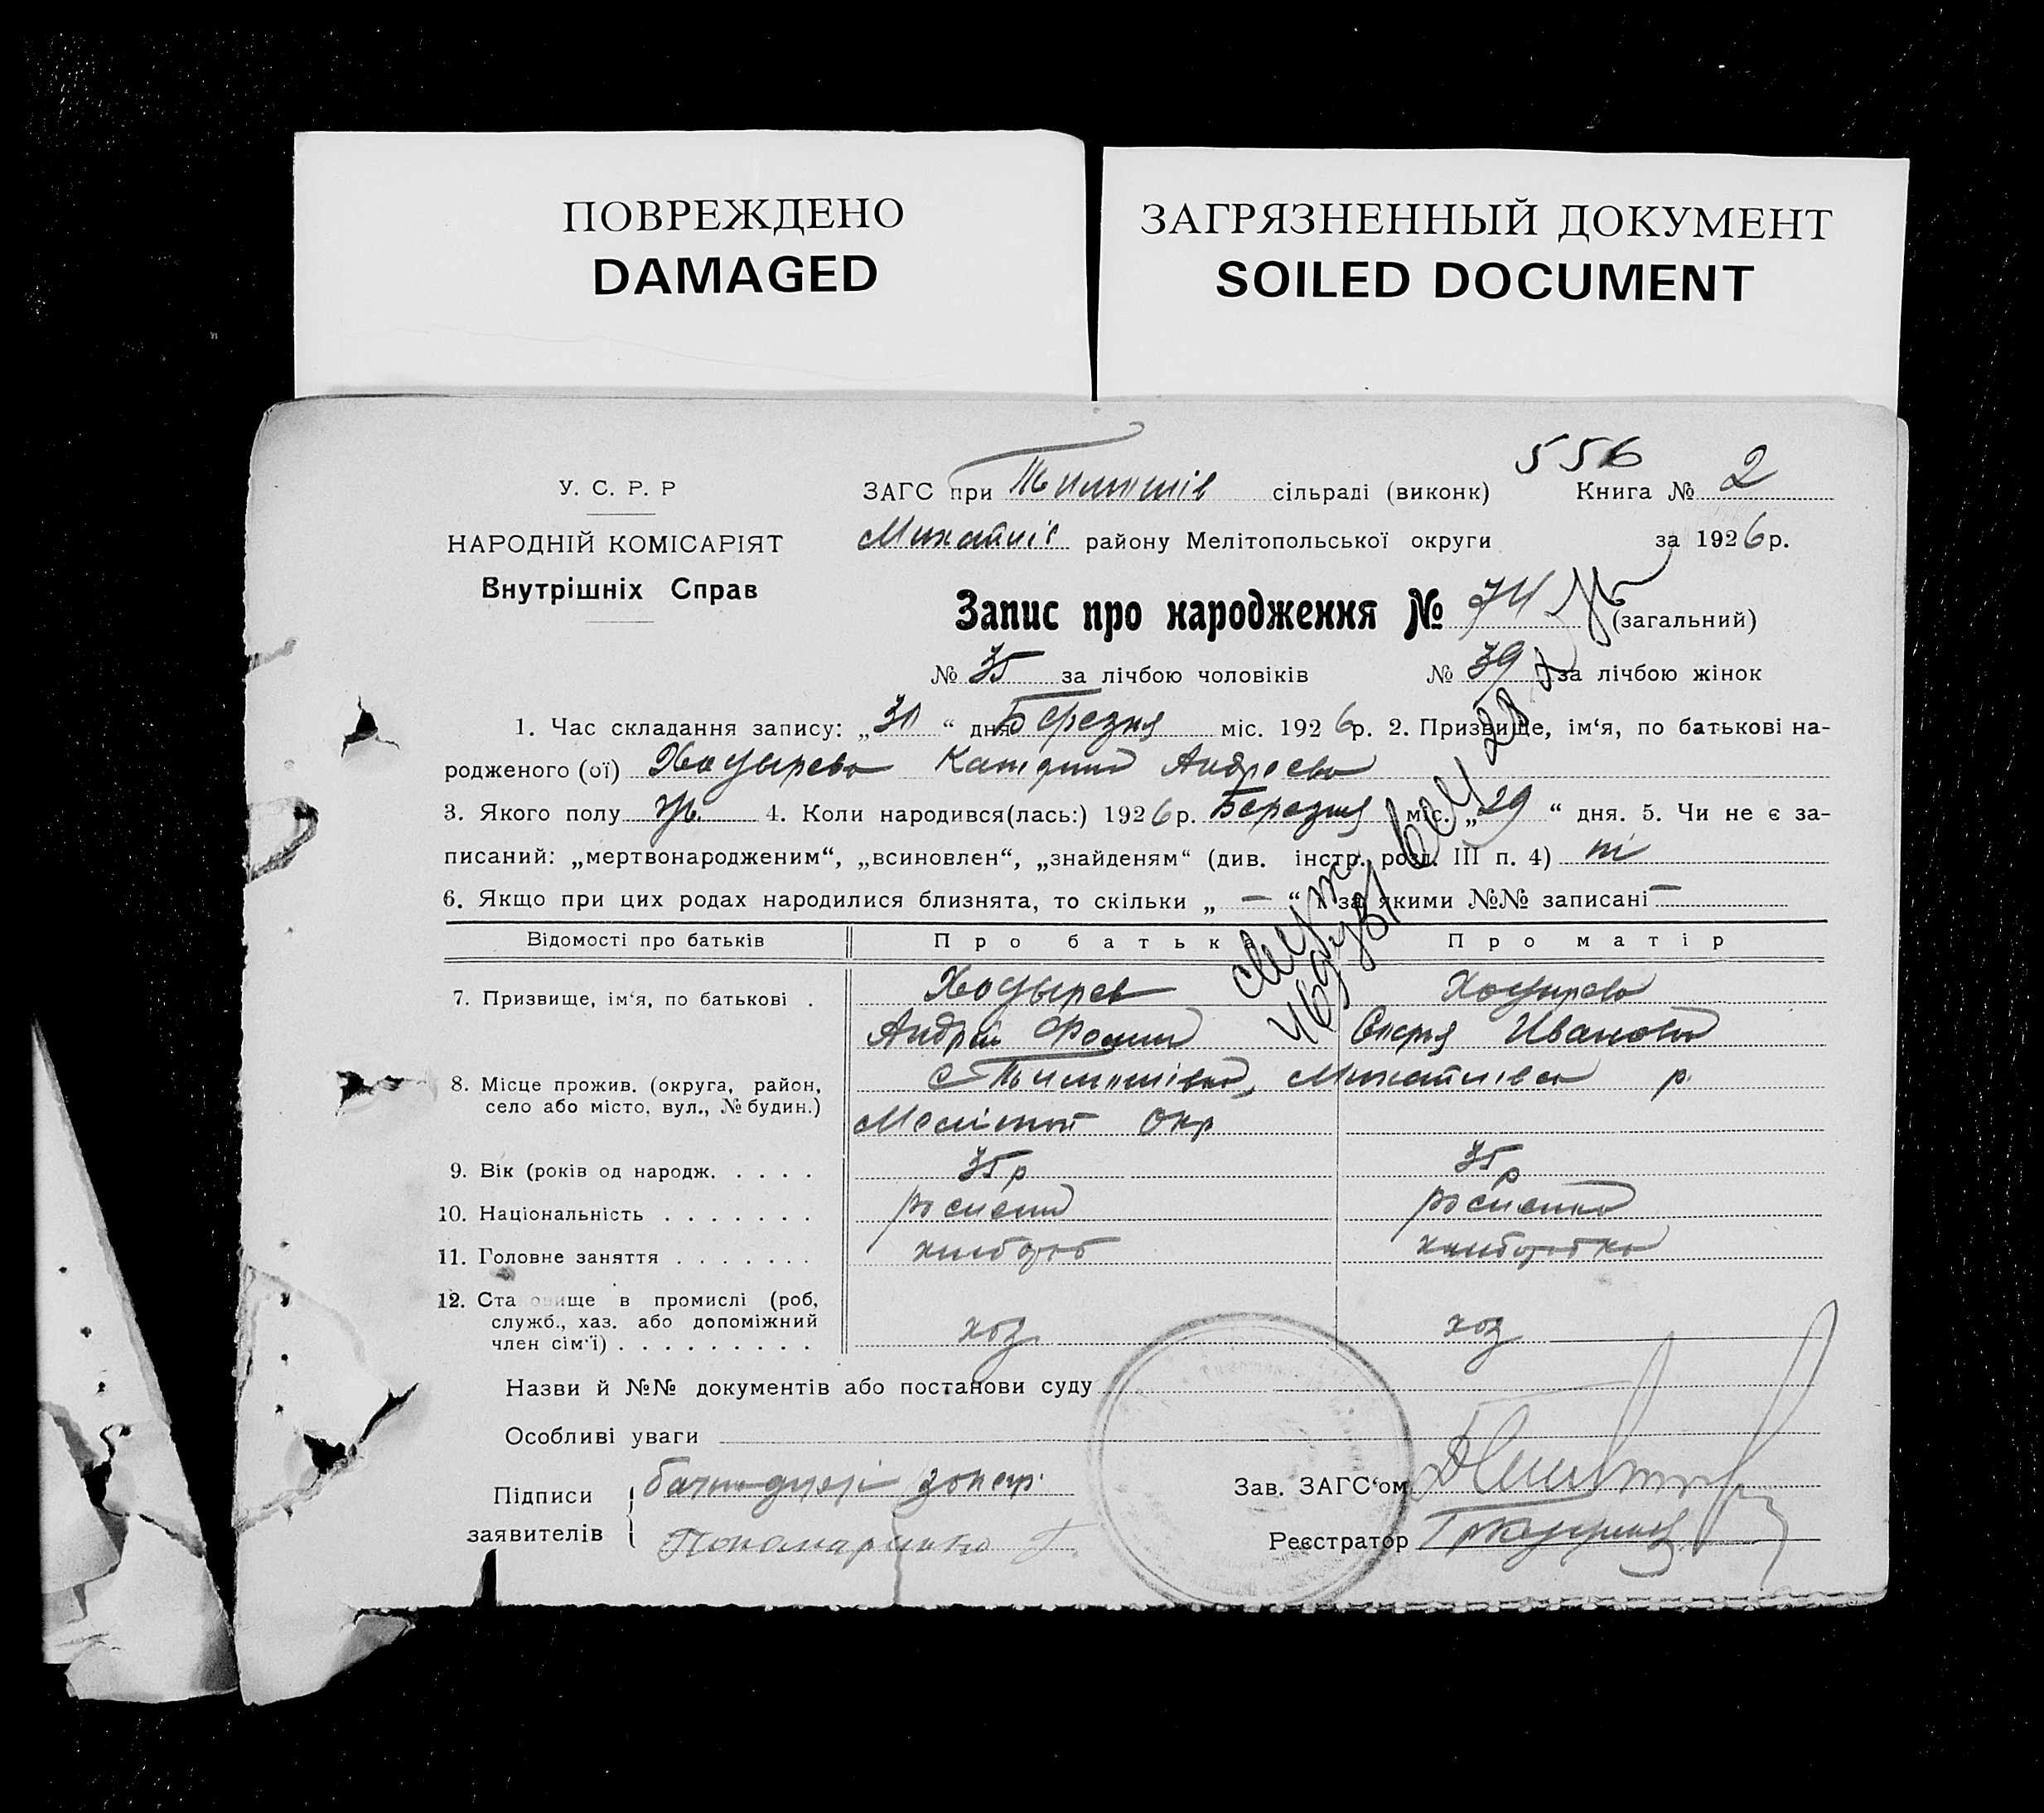 ПОВРЕЖДЕНО
DAMAGED
ЗАГРЯЗНЕННЫЙ ДОКУМЕНТ
SOILED DOCUMENT
556
У. С. Р. Р
НАРОДНІЙ КОМІСАРІЯТ
Внутрішніх Справ
ЗАГС при Тимошів сільраді (виконк) Книга № 2
Михайлів району Мелітопольської округи за 1926р.
Запис про народження № 74 (загальний)
№ 35 за лічбою чоловіків № 39 за лічбою жінок
1. Час складання запису: „30“ дня Березня міс. 1926р. 2. Призвище, ім‘я, по батькові на-
родженого (ої) Ходырева Катерина Андреева
3. Якого полу ж. 4. Коли народився(лась:) 1926р. Березня міс. „29“ дня. 5. Чи не є за-
писаний: „мертвонародженим“, „всиновлен“, „знайденям“ (див. інстр. розд. III п. 4) ні
6. Якщо при цих родах народилися близнята, то скільки „ — “ і за якими №№ записані —
Відомості про батьків Про батька Про матір
7. Призвище, ім‘я, по батькові . Ходырев Ходырева
Андрій Фомич Иванова
8. Місце прожив. (округа, район, с Тимошівка, Михайлівск р.
село або місто, вул., № будин.) Меліт Окр
9. Вік (років од народж. . . . . 35 р 35 р
10. Національність . . . . . . . росиянка
11. Головне заняття . . . . . . . хлібороб хліборобка
12. Становище в промислі (роб,
служб., хаз. або допоміжний хоз. хоз
член сім‘ї) . . . . . . . . .
Назви й №№ документів або постанови суду
Особливі уваги
Підписи
заявителів Пономаренко
Зав. ЗАГС‘ом
Реєстратор